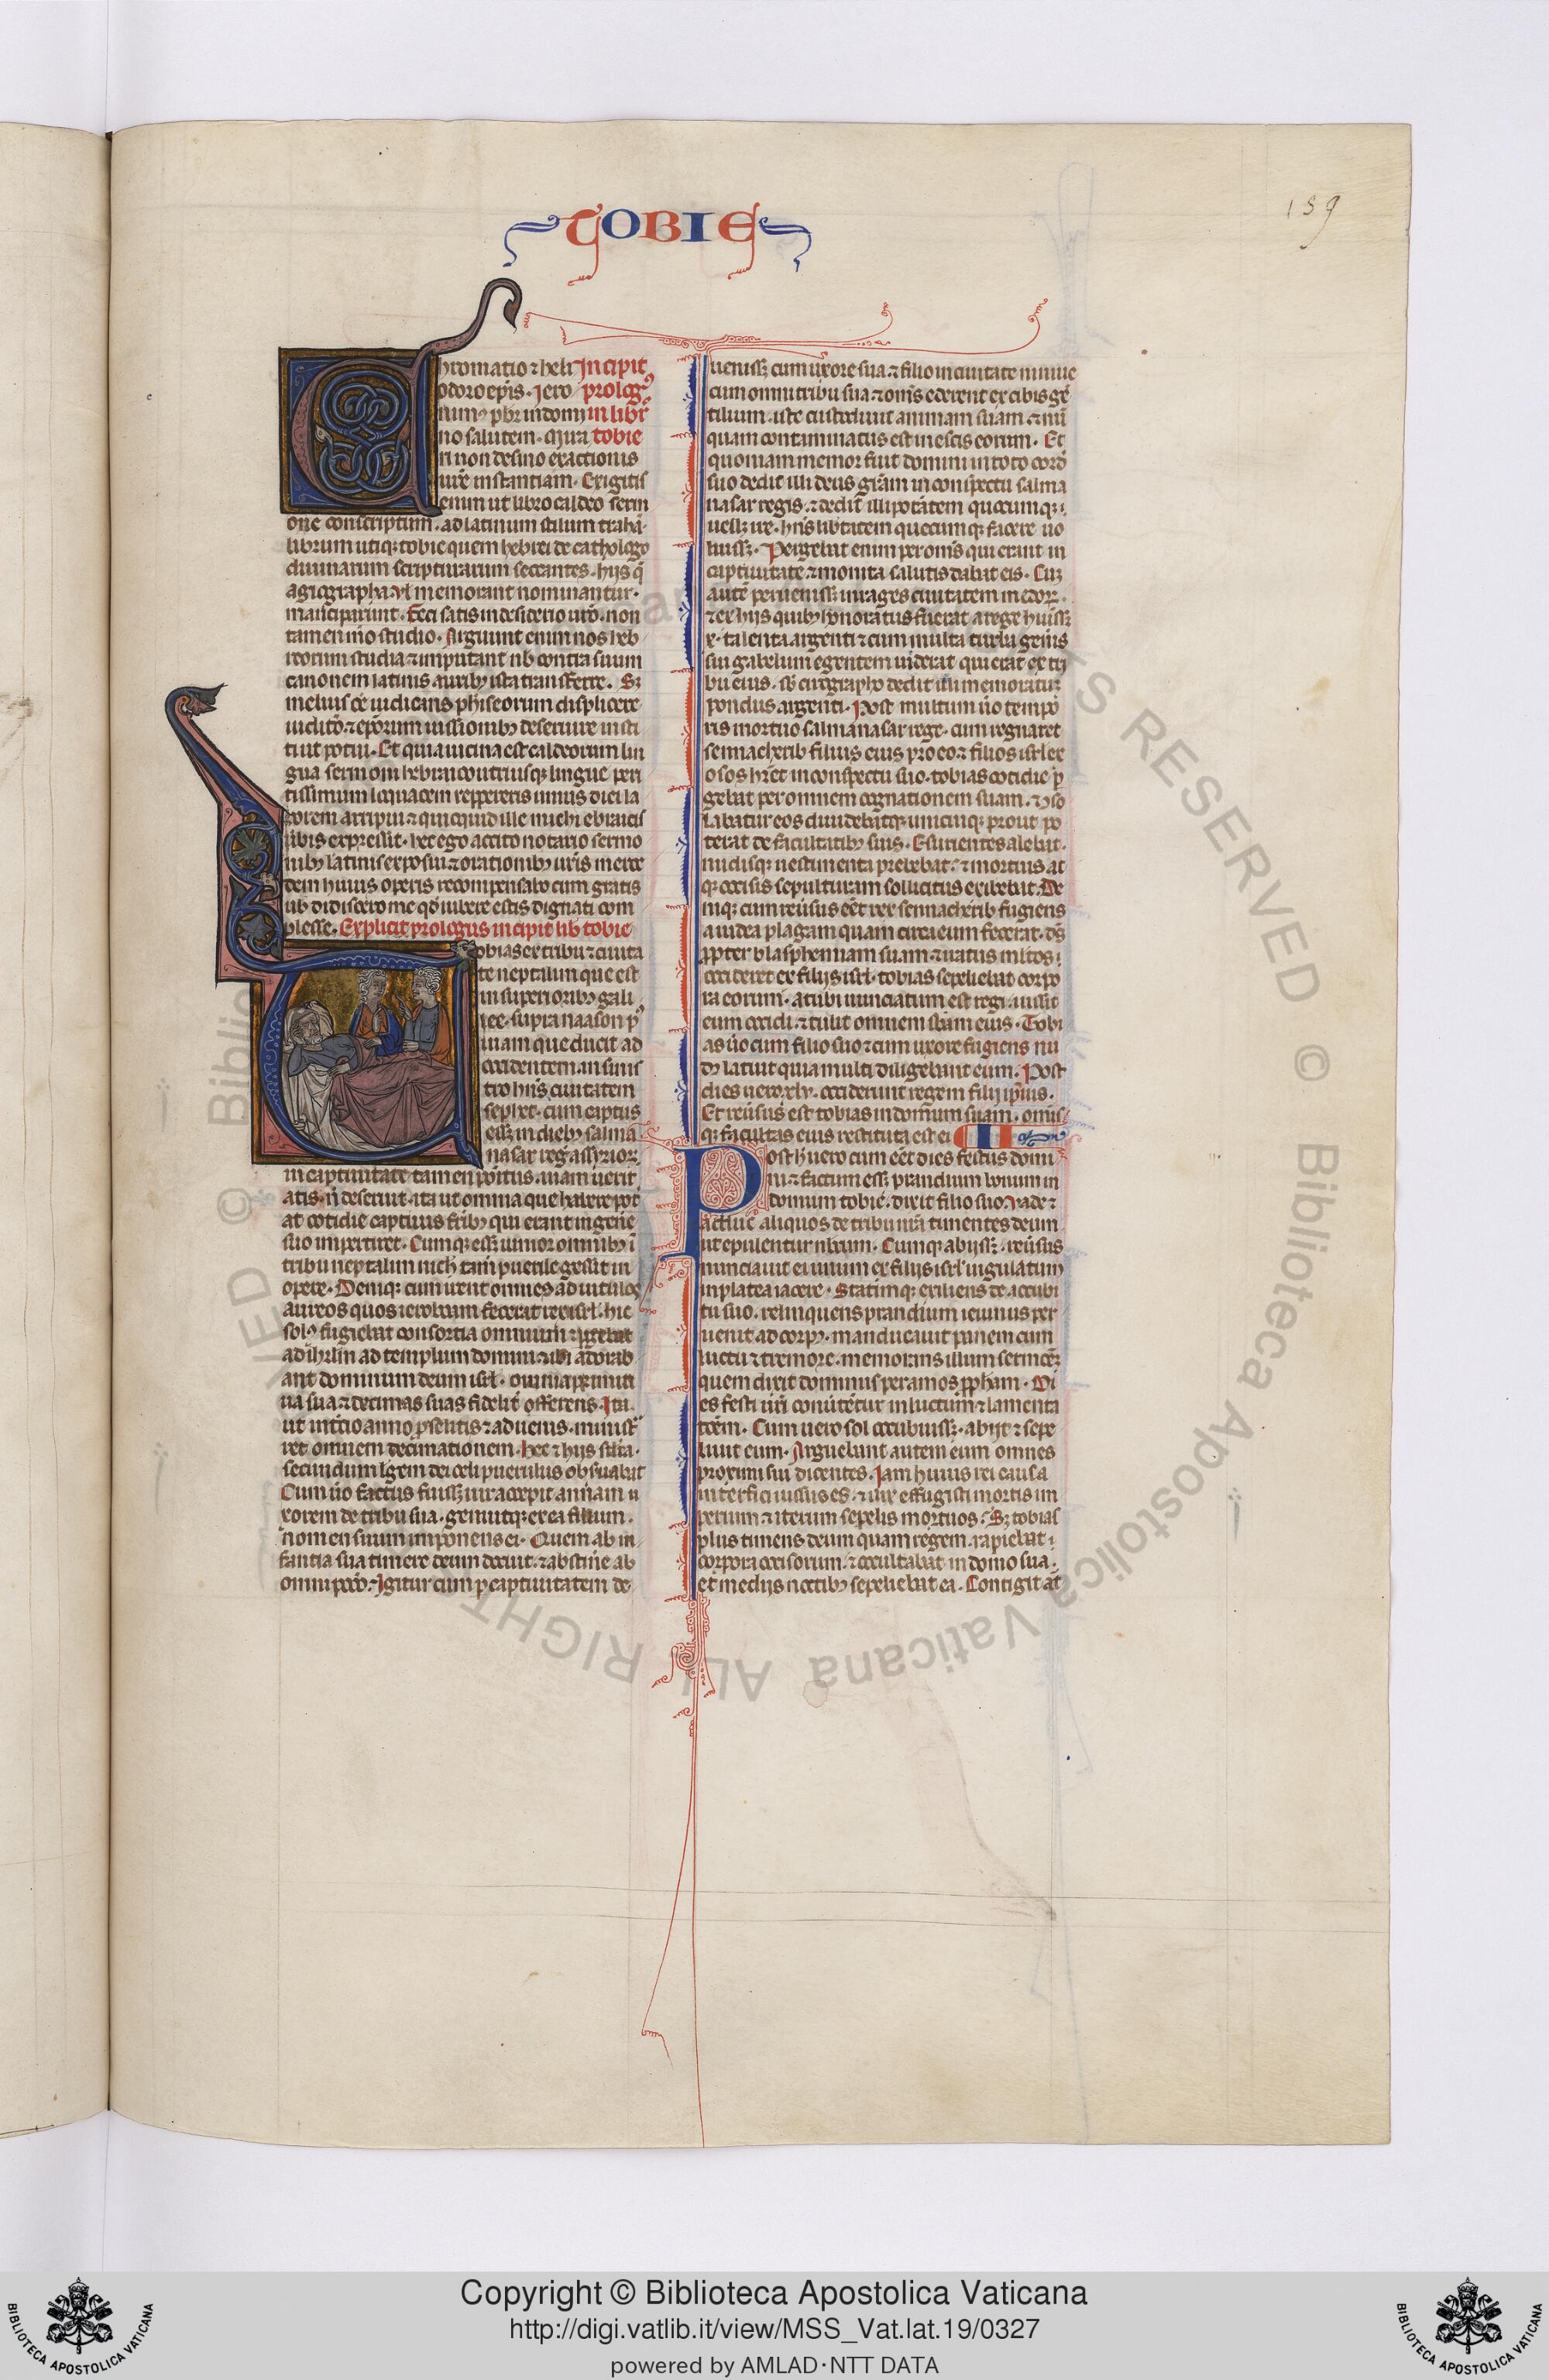 TOBIE
159
Chromatio ⁊ heli Incipit
odoro ep̄is. Iero prolog⁹
nim⁹ p̄br̄ in domi in libr̄
no salutem. Mira tobie
ri non desino exactionis
ur̄e instantiam. Exigitis
enim ut libro caldeo serm
one conscriptum. ad latinum stilum trahā.
librum utiq; tobie quem hebrei de cathologo
diuinarum scripturarum seccantes. hijs q̄
agiographa ul̄ memorant nominantur.
manciparunt. Feci satis in desiderio ur̄o. non
tamen m̄o studio. Arguunt enim nos heb
reorum studia ⁊ imputant nb̄ contra suum
canonem latinis aurib; ista transferre. Sꝫ
melius ēē iudicans phiseorum displicere
iuditō. ⁊ ep̄orum iussionib; deseruire insti
titit potui. Et quia uicina est caldeorum lin
gua sermoni hebraico utriusq; lingue peri
tissimum loquacem repperetis unius diei la
borem arripui ⁊ quicquid ille michi ebraicis
uerbis expressit. hec ego accito notario sermo
nib; latinis exposui ⁊ orationib; ur̄is merce
dem huius operis recompensabo cum gratis
ub̄ didiscero me qd̄ iubere estis dignati com
plesse. Explicit prologus incipit lib̄ tobie
Tobias ex tribu ⁊ ciuita
te neptalim que est
in superiorib; gali
lee. supra naason p⁹
uiam que ducit ad
occidentem. in sinis
tro hn̄s ciuitatem
sephet. cum captus
essꝫ in dieb; salma
nasar reḡ assyrioꝝ.
in captiuitate tamen po᷑itus. uiam uerit
atis n̄ deseruit. ita ut omnia que habere pot̄
at cotidie captiuis fr̄ib; qui erant in gen̄e
suo impertiret. Cumq; essꝫ iunior omnib; ī
tribu neptalim nich̄ tam̄ puerile gessit in
opere. Deniq; cum irent omnes ad uitulos
aureos quos ieroboam fecerat rex isrl̄. hic
sol⁹ fugiebat consortia omnium ⁊ pergebat
ad ih̄rlm̄ ad templum domini ⁊ ibi adorab
ant dominum deum isrl̄. omnia primiti
ua sua ⁊ decimas suas fidelit̄ offerens. Ita
ut in t̄cio anno p̄sentis ⁊ aduenis. ministr̄
ret omnem decimationem. hec ⁊ hijs sil̄ia.
secundum lḡem dei celi puerulus obs̄uabat
Cum ūo factus fuissꝫ uir accepit annam u
xorem de tribu sua. genuitq; ex ea filium.
nomen suum imponens ei. Quem ab in
fantia sua timere deum docuit. ⁊ abstin̄e ab
omni pcc̄o. Igitur cum p captiuitatem de
uenissꝫ cum uxore sua ⁊ filio in ciuitate niniue
cum omni tribu sua. ⁊ om̄s ederent ex cibis gē
tilium. iste custodiuit animam suam ⁊ nū
quam contaminatus est in escis eorum. Et
quoniam memor fuit domini in toto corde
suo dedit illi deus grām in conspectu salma
nasar regis. ⁊ dedit illi potātem quocumq;
uellꝫ ire. hn̄s lib̄tatem quecumq; facere uo
luissꝫ. Pergebat enim per om̄s qui erant in
captiuitate. ⁊ monita salutis dabat eis. Cuꝫ
autē peruenissꝫ in rages ciuitatem medoꝝ.
⁊ ex hijs quib; honoratus fuerat a rege huissꝫ
x. talenta argenti ⁊ cum multa turba gen̄is
sui gabelum egentem uiderat qui erat ex tri
bu eius. sb̄ cirographo dedit illi memoratuꝫ
pondus argenti. Post multum ūo tempo
ris mortuo salmanasar rege. cum regnaret
sennacherib filius eius pro eo. ⁊ filios isrl̄ ex
osos hr̄et in conspectu suo. tobias cotidie p̄
gebat per omnem cognationem suam. ⁊ co̅so
labatur eos diuidebatq; unicuiq; prout po
terat de facultatib; suis. Esurientes alebat.
nudisq; uestimenta prebebat. ⁊ mortuis at
q; occisis sepulturam sollicitus exibebat. De
niq; cum reūsus eēt rex sennacherib fugiens
a iudea plagam quam circa eum fecerat ds̄
ꝓpter blasphemiam suam ⁊ iratus ml̄tos
occideret ex filijs isrl̄. tobias sepeliebat corpo
ra eorum. at ubi nunciatum est regi. iussit
eum occidi. ⁊ tulit omnem sb̄am eius. Tobi
as ūo cum filio suo ⁊ cum uxore fugiens nu
d⁹ latuit quia multi diligebant eum. Post
dies uero xlv. occiderunt regem filij ip̄ius.
Et reūsus est tobias in domum suam. omīs
q; facultas eius restituta est ei II
Post h̄ uero cum eēt dies festus domi
ni ⁊ factum essꝫ prandium bonum in
domum tobie. dixit filio suo. Vade ⁊
adduc aliquos de tribu nr̄a timentes deum
ut epulentur nb̄cum. Cumq; abijssꝫ. reūsus
nunciauit ei unum ex filijs isrl̄ iugulatum
in platea iacere. Statimq; exiliens de accubi
tu suo. relinquens prandium ieiunus per
uenit ad corp⁹. manducauit panem cum
luctu ⁊ tremore. memorans illum sermōꝫ
quem dixit dominus per amos ꝓpham. Di
es festi ur̄i conūtētur in luctum ⁊ lamenta
tōem. Cum uero sol occubuissꝫ. abijt ⁊ sepe
liuit eum. Arguebant autem eum omnes
proximi sui dicentes. Iam huius rei causa
interfici iussus es. ⁊ uix effugisti mortis im
perium ⁊ iterum sepelis mortuos. Sꝫ tobias
plus timens deum quam regem. rapiebat
corpora occisorum. ⁊ occultabat in domo sua.
et medijs noctib; sepeliebat ea. Contigit āt
© Biblioteca Apostolica Vaticana ALL RIGHTS RESERVED
Copyright © Biblioteca Apostolica Vaticana
http://digi.vatlib.it/view/MSS_Vat.lat.19/0327
powered by AMLAD·NTT DATA
BIBLIOTECA APOSTOLICA VATICANA
BIBLIOTECA APOSTOLICA VATICANA